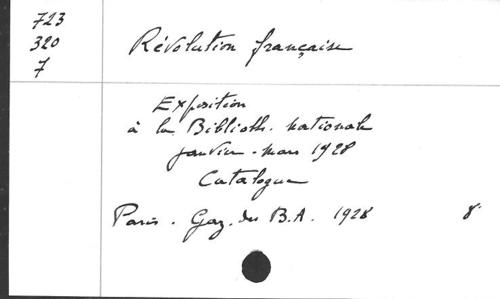 723
320
7
Révolution française
Exposition
à la Biblioth. nationale
janvier - mars 1928
Catalogue
Paris. Gaz. des B.A. 1928 8°